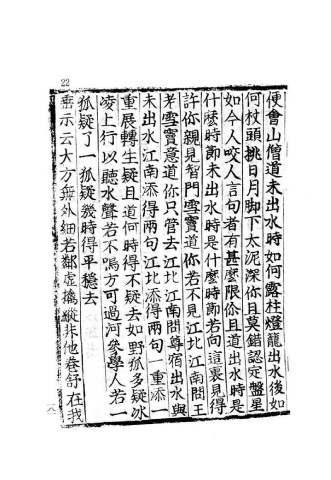 22
便會山僧道未出水時如何露柱燈籠出水後如
何杖頭挑日月脚下太泥深你且莫錯認定盤星
如今人咬人言句者有甚麼限你且道出水時是
什麼時節未出水時是什麼時節若向這裏見得
許你親見智門雪竇道你若不見江北江南問王
老雪竇意道你只管去江北江南問尊宿出水與
未出水江南添得兩句江北添得兩句一重添一
重展轉生疑且道何時得不疑去如野狐多疑冰
凌上行以聽水聲若不鳴方可過河參學人若一
狐疑了一狐疑幾時得平穩去
垂示云大方無外細若鄰虛擒縱非他卷舒在我